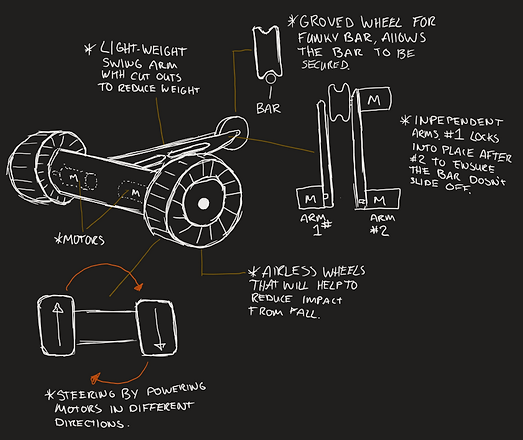 * LIGHT-WEIGHT
SWING ARM
WITH CUT OUTS
TO REDUCE WEIGHT
BAR
* GROVED WHEEL FOR
FUNKY BAR, ALLOWS
THE BAR TO BE
SECURED.
M
M
M
ARM
1#
ARM
#2
* INPEPENDENT
ARMS #1 LOCKS
INTO PLACE AFTER
#2 TO ENSURE
THE BAR DOSN'T
SLIDE OFF.
M
M
*MOTORS
*AIRLESS WHEELS
THAT WILL HELP TO
REDUCE IMPACT
FROM FALL.
*STEERING BY POWERING
MOTORS IN DIFFERENT
DIRECTIONS.